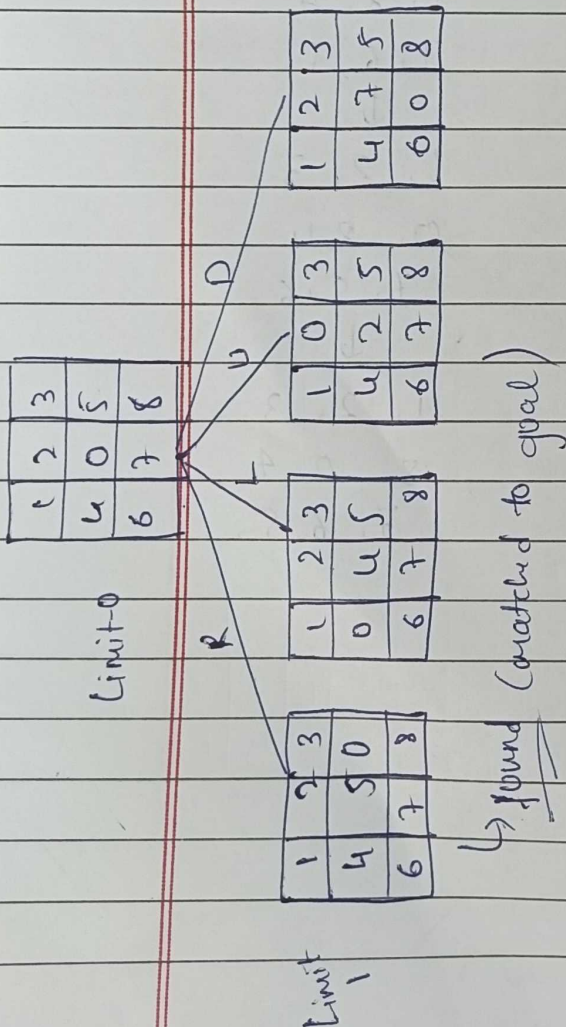 Limit-0
1 2 3
4 0 5
6 7 8
R L U D
Limit
1
1 2 3
4 5 0
6 7 8
1 2 3
0 4 5
6 7 8
1 0 3
4 2 5
6 7 8
1 2 3
4 7 5
6 0 8
↳ found (matched to goal)